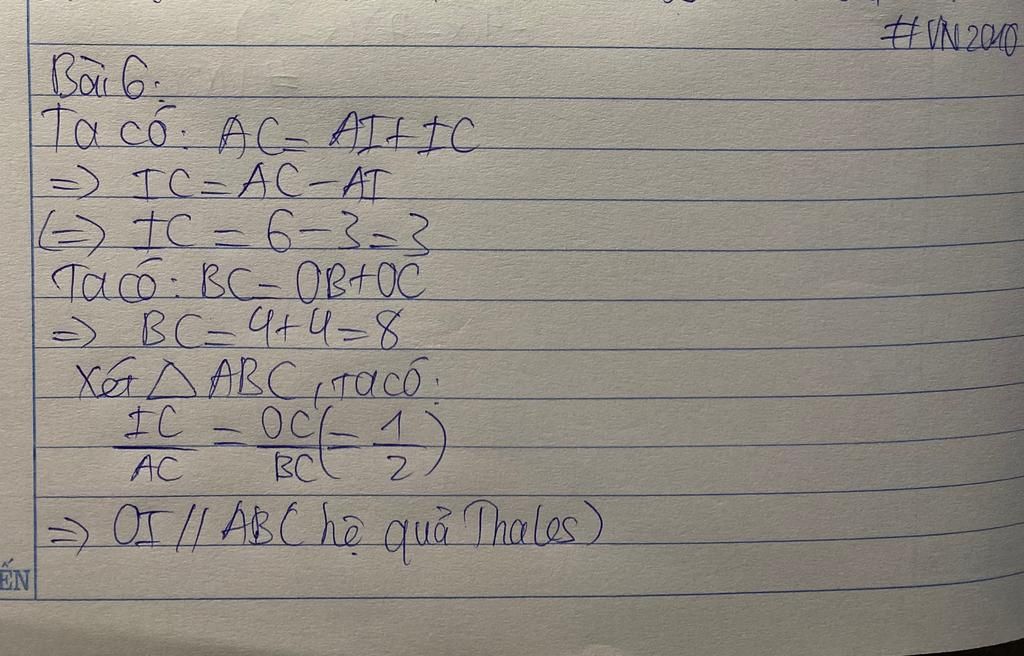 #VN2010
Bài 6:
Ta có: AC = AI + IC
=> IC = AC - AI
(=) IC = 6 - 3 = 3
Ta có: BC = OB + OC
=> BC = 4 + 4 = 8
Xét △ ABC, ta có:
IC/AC = OC/BC (= 1/2)
=> OI // AB (hệ quả Thales)
ẾN